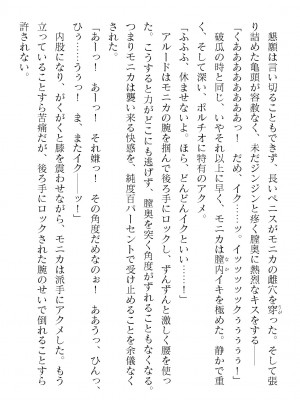 懇願は言い切ることもできず、長いペニスがモニカの雌穴を穿った。そして張
り詰めた亀頭が容赦なく、未だジンジンと疼く膣奥に熱烈なキスをする──
「くああああああっ！　だめ、イク……ッ。イッッッッックぅぅぅぅぅ！」
破瓜の時と同じ、いやそれ以上に早く、モニカは膣内イキを極めた。静かで重
く、そして深い、ポルチオに特有のアクメ。
「ふふふ、休ませないよ。ほら、どんどんイクといい……！」
アルードはモニカの腕を掴んで後ろ手にロックし、ずんずんと激しく腰を使っ
た。こうすると力がどこにも逃げず、膣奥を突く角度がずれることもなくなる。
つまりモニカは襲い来る快感を、純度百パーセントで受け止めることを余儀なく
された。
「あーっ！　あーっ！　それ嫌っ！　その角度だめなのぉっ！　ああうっ、ひんっ、
ひぅ……うぅっ！　ま、またイクーーッ！」
内股になり、がくがくと膝を震わせながら、モニカは派手にアクメした。もう
立っていることすら苦痛だが、後ろ手にロックされた腕のせいで倒れることすら
許されない。